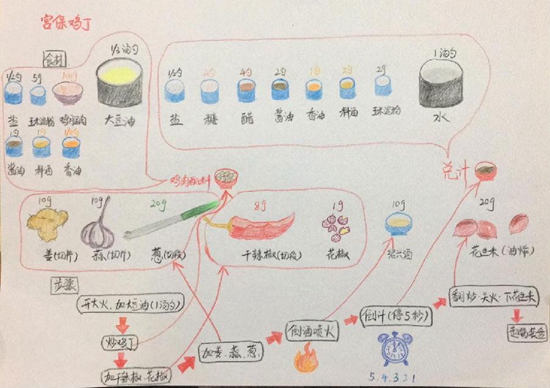 宫保鸡丁
食材
1/2汤勺
1汤勺
1/2勺 5g
盐 玉米淀粉 鸡胸肉 大豆油
1/2勺 2勺 4勺 2勺 1勺 2勺 2勺
盐 糖 醋 酱油 香油 料酒 玉米淀粉 水
1勺 1勺 1/2勺
酱油 料酒 香油
鸡肉腌料
芡汁
10g 10g 20g 8g 1g 10g 20g
姜(切片) 蒜(切片) 葱(切段) 干辣椒(切段) 花椒 花生米(油炸)
步骤
开大火、加大豆油(1汤勺)
炒鸡丁
加干辣椒、花椒
加姜、蒜、葱
倒酒喷火
倒汁(停5秒)
翻炒·关火·下花生米
起锅装盘
5.4.3.2.1